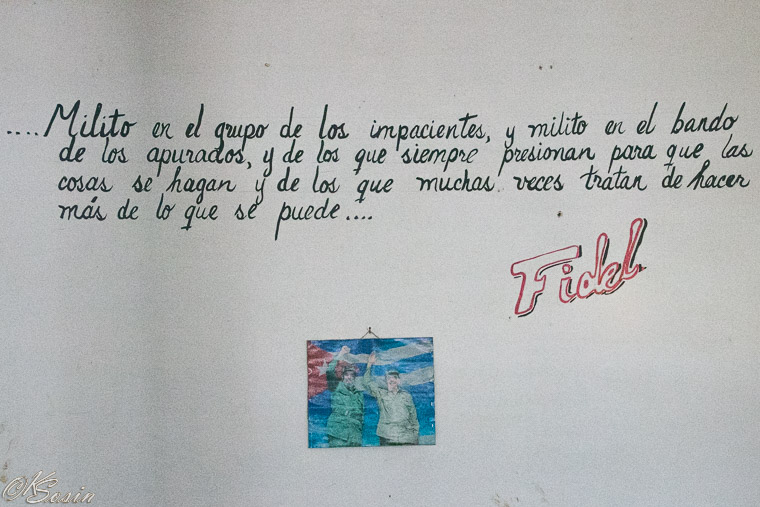 ....Milito en el grupo de los impacientes, y milito en el bando
de los apurados, y de los que siempre presionan para que las
cosas se hagan y de los que muchas veces tratan de hacer
más de lo que se puede....
Fidel
©KSosin